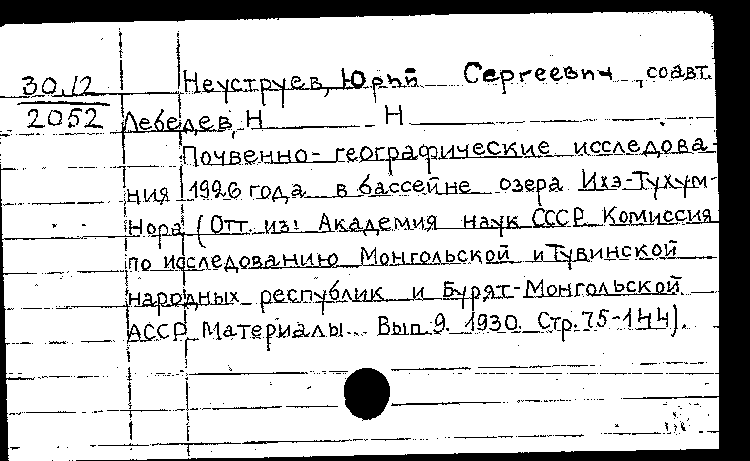 30.12 Неуструев, Юрий Сергеевич, соавт.
2052 Лебедев, Н Н
Почвенно-географические исследова-
ния 1926 года в бассейне озера Ихэ-Тухум-
Нора (Отт. из: Академия наук СССР. Комиссия
по исследованию Монгольской и Тувинской
народных республик и Бурят-Монгольской
АССР. Материалы... Вып. 9. 1930. Стр. 75-144).